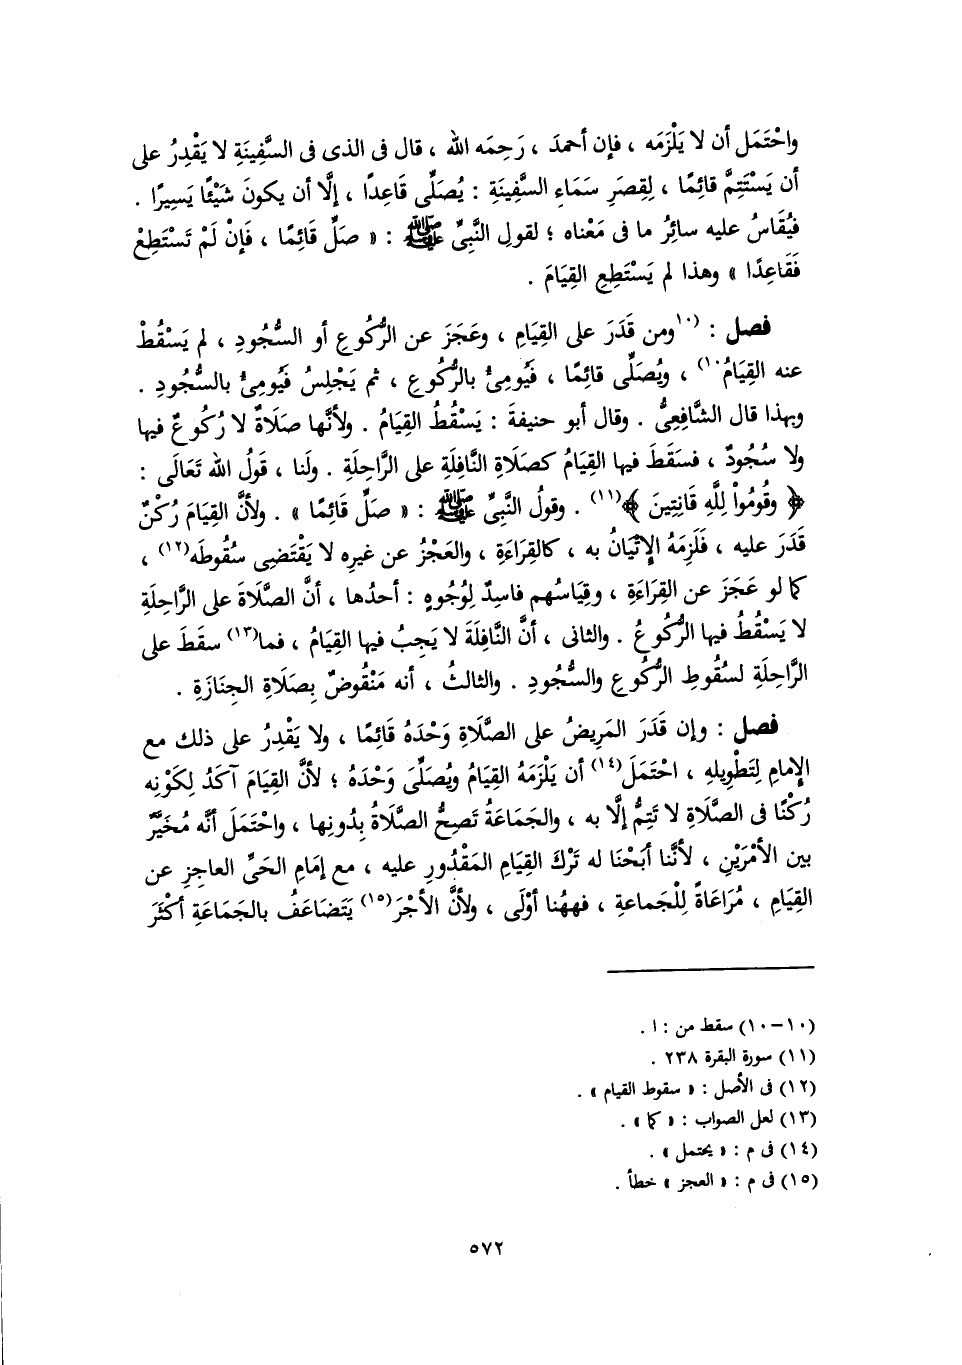 واحْتَمَل أن لا يَلْزَمَه ، فإن أحمدَ ، رَحِمَه الله ، قال فى الذى فى السَّفِينَةِ لا يَقْدِرُ على
أن يَسْتَتِمَّ قائِمًا ، لِقِصَرِ سَمَاءِ السَّفِينَةِ : يُصَلِّى قَاعِدًا ، إلَّا أن يكونَ شَيْئًا يَسِيرًا .
فيُقَاسُ عليه سائِرُ ما فى مَعْناه ؛ لقولِ النَّبِىِّ ﷺ : « صَلِّ قَائِمًا ، فَإنْ لَمْ تَسْتَطِعْ
فَقَاعِدًا » وهذا لم يَسْتَطِعِ القِيَامَ .
فصل : (١٠ومن قَدَرَ على القِيَامِ ، وعَجَزَ عن الرُّكُوعِ أو السُّجُودِ ، لم يَسْقُطْ
عنه القِيَامُ١٠) ، ويُصَلِّى قائِمًا ، فَيُومِئُ بالرُّكُوعِ ، ثم يَجْلِسُ فَيُومِئُ بالسُّجُودِ .
وبهذا قال الشَّافِعِىُّ . وقال أبو حنيفةَ : يَسْقُطُ القِيَامُ . ولأنَّها صَلَاةٌ لا رُكُوعٌ فيها
ولا سُجُودٌ ، فسَقَطَ فيها القِيَامُ كصَلَاةِ النَّافِلَةِ على الرَّاحِلَةِ . ولَنا ، قَوْلُ الله تَعَالَى :
﴿ وقُومُواْ لِلَّهِ قَانِتِينَ ﴾(١١) . وقولُ النَّبِىِّ ﷺ : « صَلِّ قَائِمًا » . ولأنَّ القِيَامَ رُكْنٌ
قَدَرَ عليه ، فَلَزِمَهُ الإِتْيَانُ به ، كالقِرَاءَةِ ، والعَجْزُ عن غيرِه لا يَقْتَضِى سُقُوطَه(١٢) ،
كما لو عَجَزَ عن القِرَاءَةِ ، وقِيَاسُهم فاسِدٌ لِوُجُوهٍ : أحدُها ، أنَّ الصَّلَاةَ على الرَّاحِلَةِ
لا يَسْقُطُ فيها الرُّكُوعُ . والثانى ، أنَّ النَّافِلَةَ لا يَجِبُ فيها القِيَامُ ، فما(١٣) سقَطَ على
الرَّاحِلَةِ لسُقُوطِ الرُّكُوعِ والسُّجُودِ . والثالثُ ، أنه مَنْقُوضٌ بِصَلَاةِ الجِنَازَةِ .
فصل : وإن قَدَرَ المَرِيضُ على الصَّلَاةِ وَحْدَهُ قَائِمًا ، ولا يَقْدِرُ على ذلك مع
الإمامِ لِتَطْوِيلِهِ ، احْتَمَلَ(١٤) أن يَلْزَمَهُ القِيَامُ ويُصَلِّىَ وَحْدَهُ ؛ لأنَّ القِيَامَ آكَدُ لِكَوْنِه
رُكْنًا فى الصَّلَاةِ لا تَتِمُّ إلَّا به ، والجَمَاعَةُ تَصِحُّ الصَّلَاةُ بِدُونِها ، واحْتَمَلَ أنَّه مُخَيَّرٌ
بين الأمْرَيْنِ ، لأنَّنا أبَحْنَا له تَرْكَ القِيَامِ المَقْدُورِ عليه ، مع إمَامِ الحَىِّ العاجِزِ عن
القِيَامِ ، مُرَاعَاةً لِلْجَماعةِ ، فههُنا أوْلَى ، ولأنَّ الأجْرَ(١٥) يَتَضَاعَفُ بالجَمَاعَةِ أكْثَرَ
(١٠-١٠) سقط من : ا .
(١١) سورة البقرة ٢٣٨ .
(١٢) فى الأصل : « سقوط القيام » .
(١٣) لعل الصواب : « كما » .
(١٤) فى م : « يحتمل » .
(١٥) فى م : « العجز » خطأ .
٥٧٢